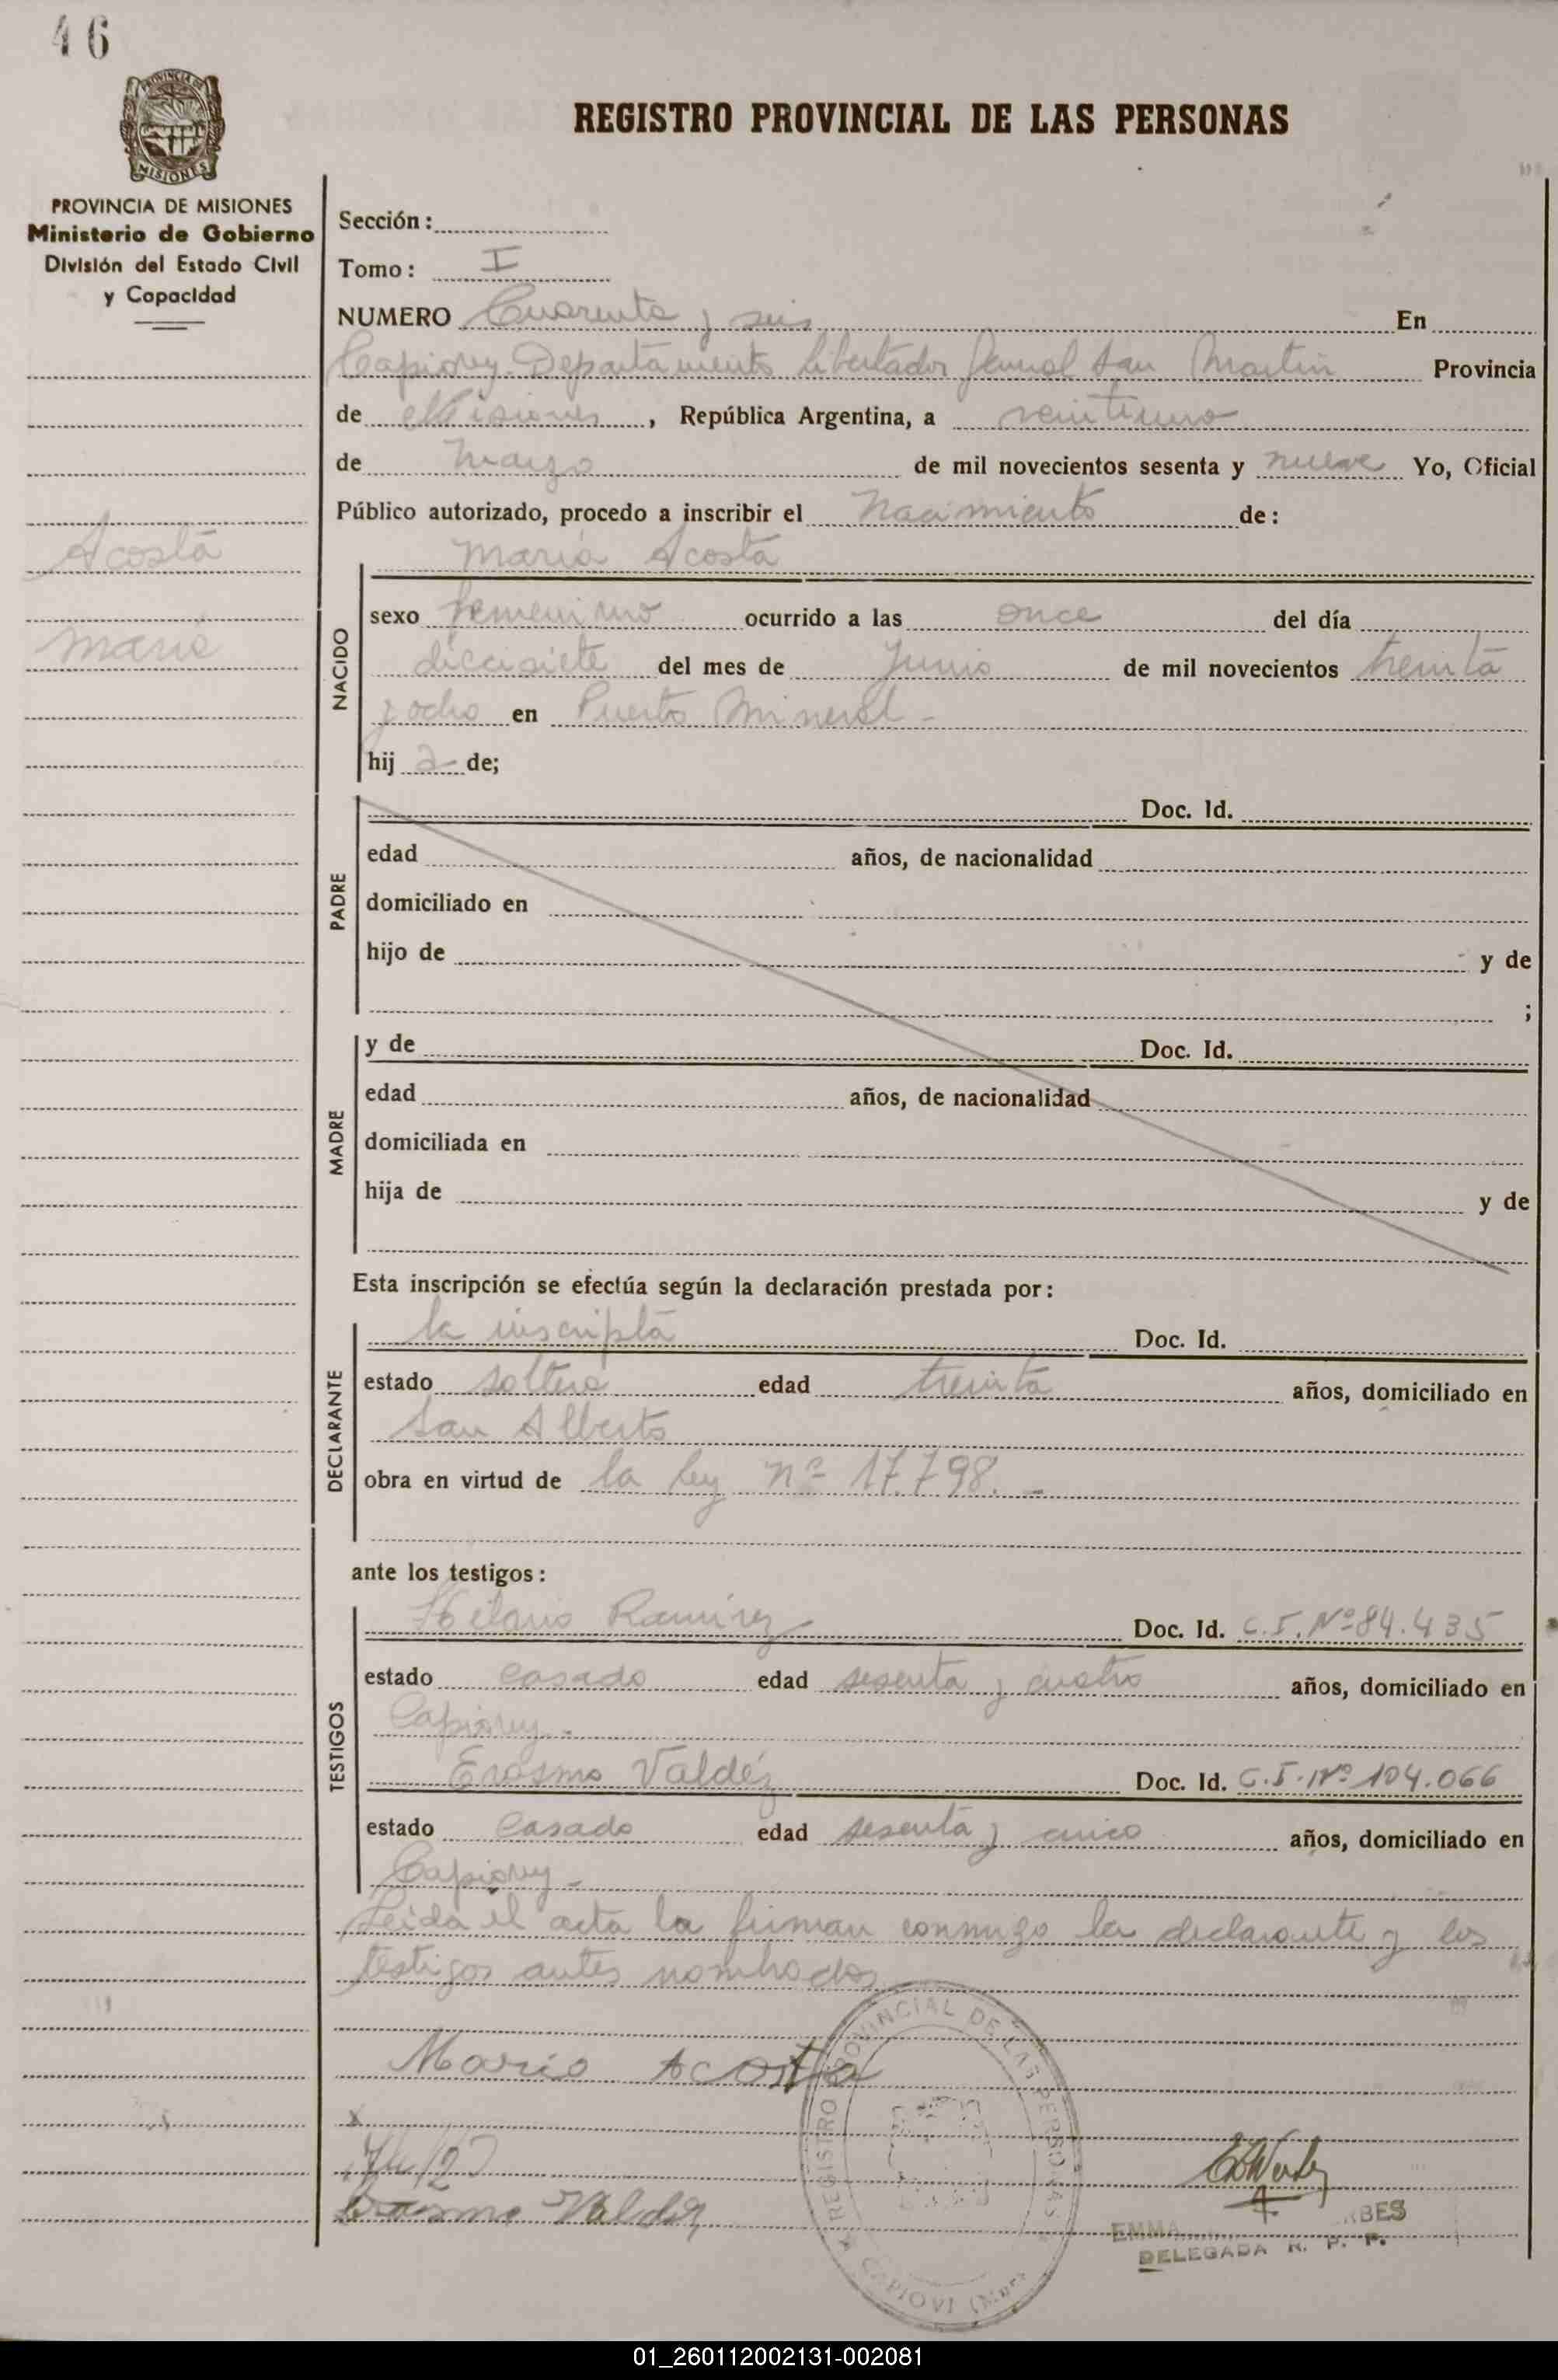 46
PROVINCIA DE
MISIONES
REGISTRO PROVINCIAL DE LAS PERSONAS
PROVINCIA DE MISIONES
Ministerio de Gobierno
División del Estado Civil
y Capacidad
Acosta
María
Sección:
Tomo: I
NUMERO Cuarenta y seis En
Capiovy-Departamento Libertador General San Martín Provincia
de Misiones, República Argentina, a veintiuno
de Marzo de mil novecientos sesenta y nueve Yo, Oficial
Público autorizado, procedo a inscribir el Nacimiento de:
María Acosta
NACIDO
sexo femenino ocurrido a las once del día
diecisiete del mes de Junio de mil novecientos treinta
y ocho en Puerto Mineral-
hij a de;
PADRE
Doc. Id.
edad años, de nacionalidad
domiciliado en
hijo de y de
;
MADRE
y de Doc. Id.
edad años, de nacionalidad
domiciliada en
hija de y de
Esta inscripción se efectúa según la declaración prestada por:
DECLARANTE
la inscripta Doc. Id.
estado soltera edad treinta años, domiciliado en
San Alberto
obra en virtud de la ley nº 17.798.-
ante los testigos:
TESTIGOS
Hilario Ramírez Doc. Id. C.I. Nº 84.435
estado casado edad sesenta y cuatro años, domiciliado en
Capiovy-
Erasmo Valdéz Doc. Id. C.I. Nº 104.066
estado casado edad sesenta y cinco años, domiciliado en
Capiovy-
Leída el acta la firman conmigo la declarante y los
testigos antes nombrados
María Acosta
x
Erasmo Valdez
REGISTRO PROVINCIAL DE LAS PERSONAS
CAPIOVI (Mnes)
EMMA
DELEGADA R. P. P.
01_260112002131-002081